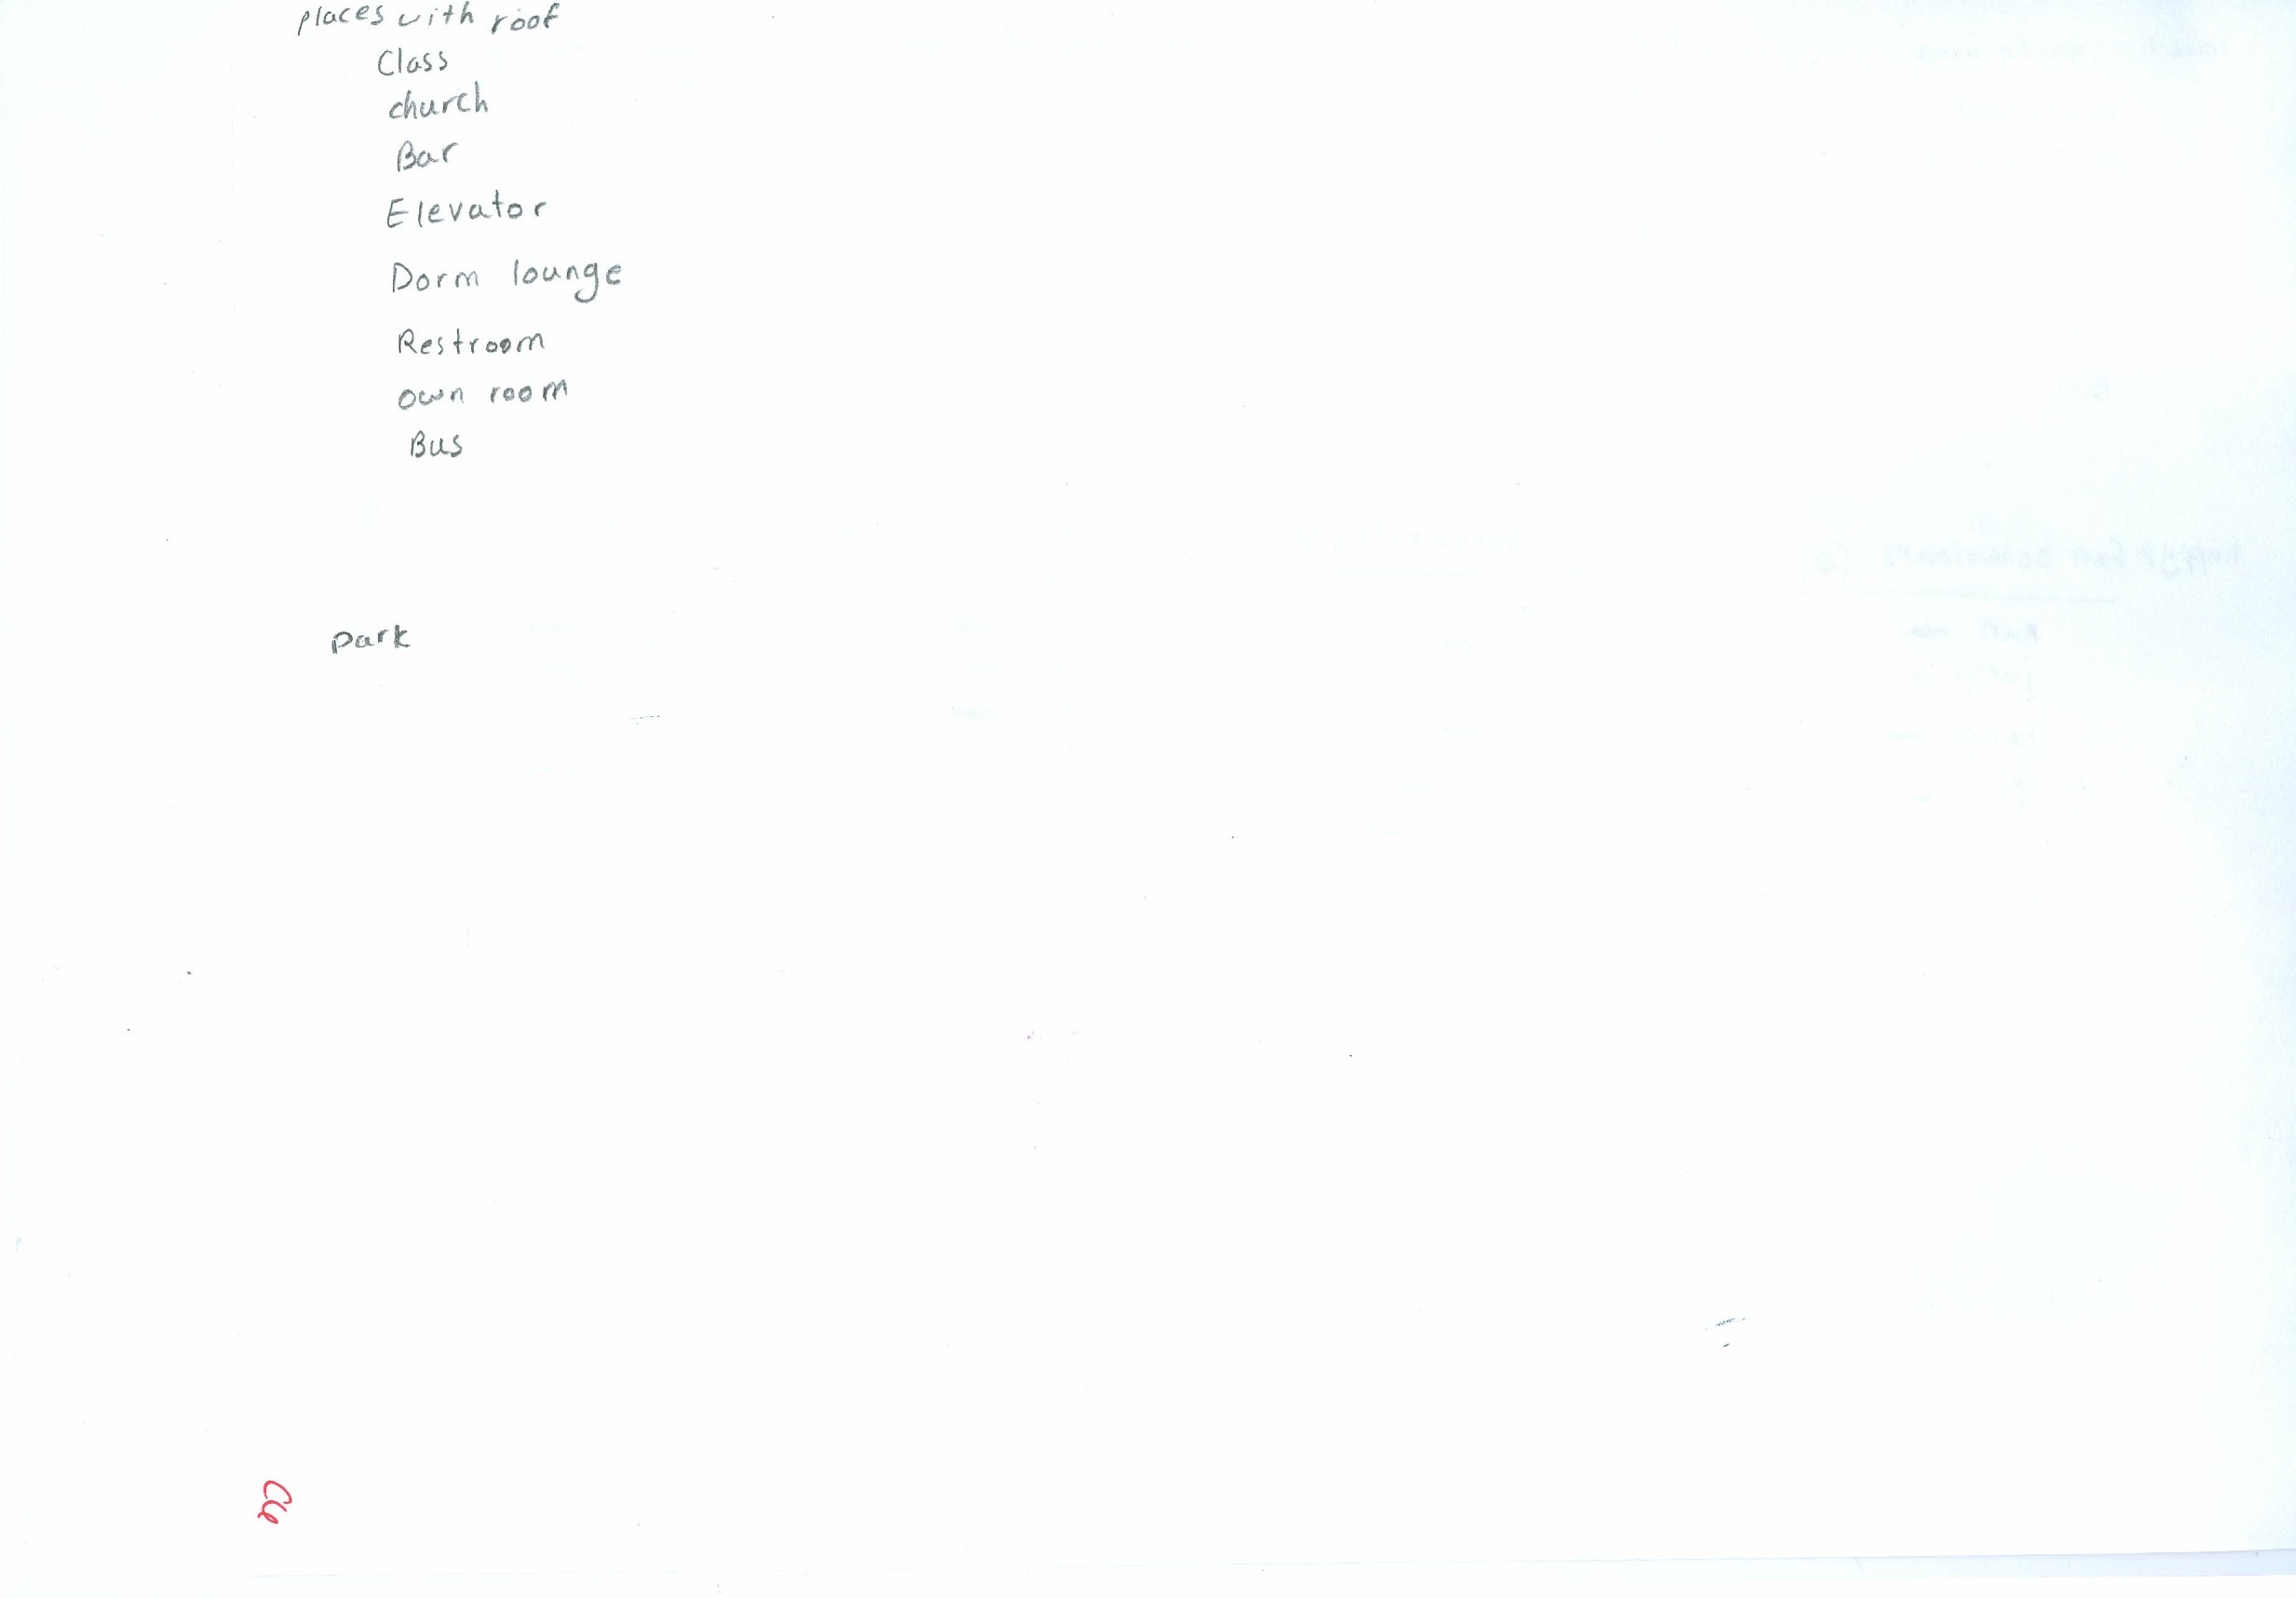 places with roof
Class
church
Bar
Elevator
Dorm lounge
Restroom
own room
Bus
park